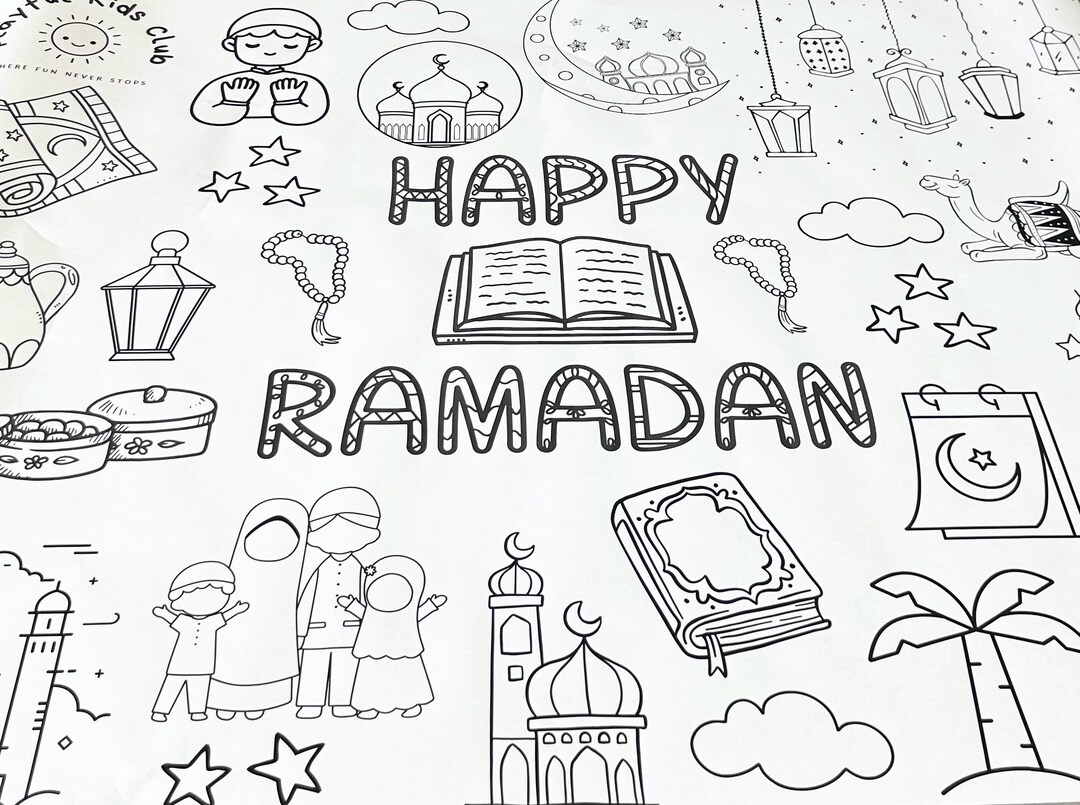 ayful Kids Club
HERE FUN NEVER STOPS
HAPPY
RAMADAN